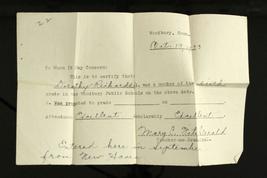 22
Woodbury, Conn.,
Oct. 19, 1933
To Whom It May Concern:
This is to certify that
Dorothy Richards was a member of the
grade in the Woodbury Public Schools on the above date.
Was promoted to grade on
Attendance Excellent Scholarship Excellent
Mary E. Fitzgerald
Teacher or Principal.
Entered here in September
from New Haven